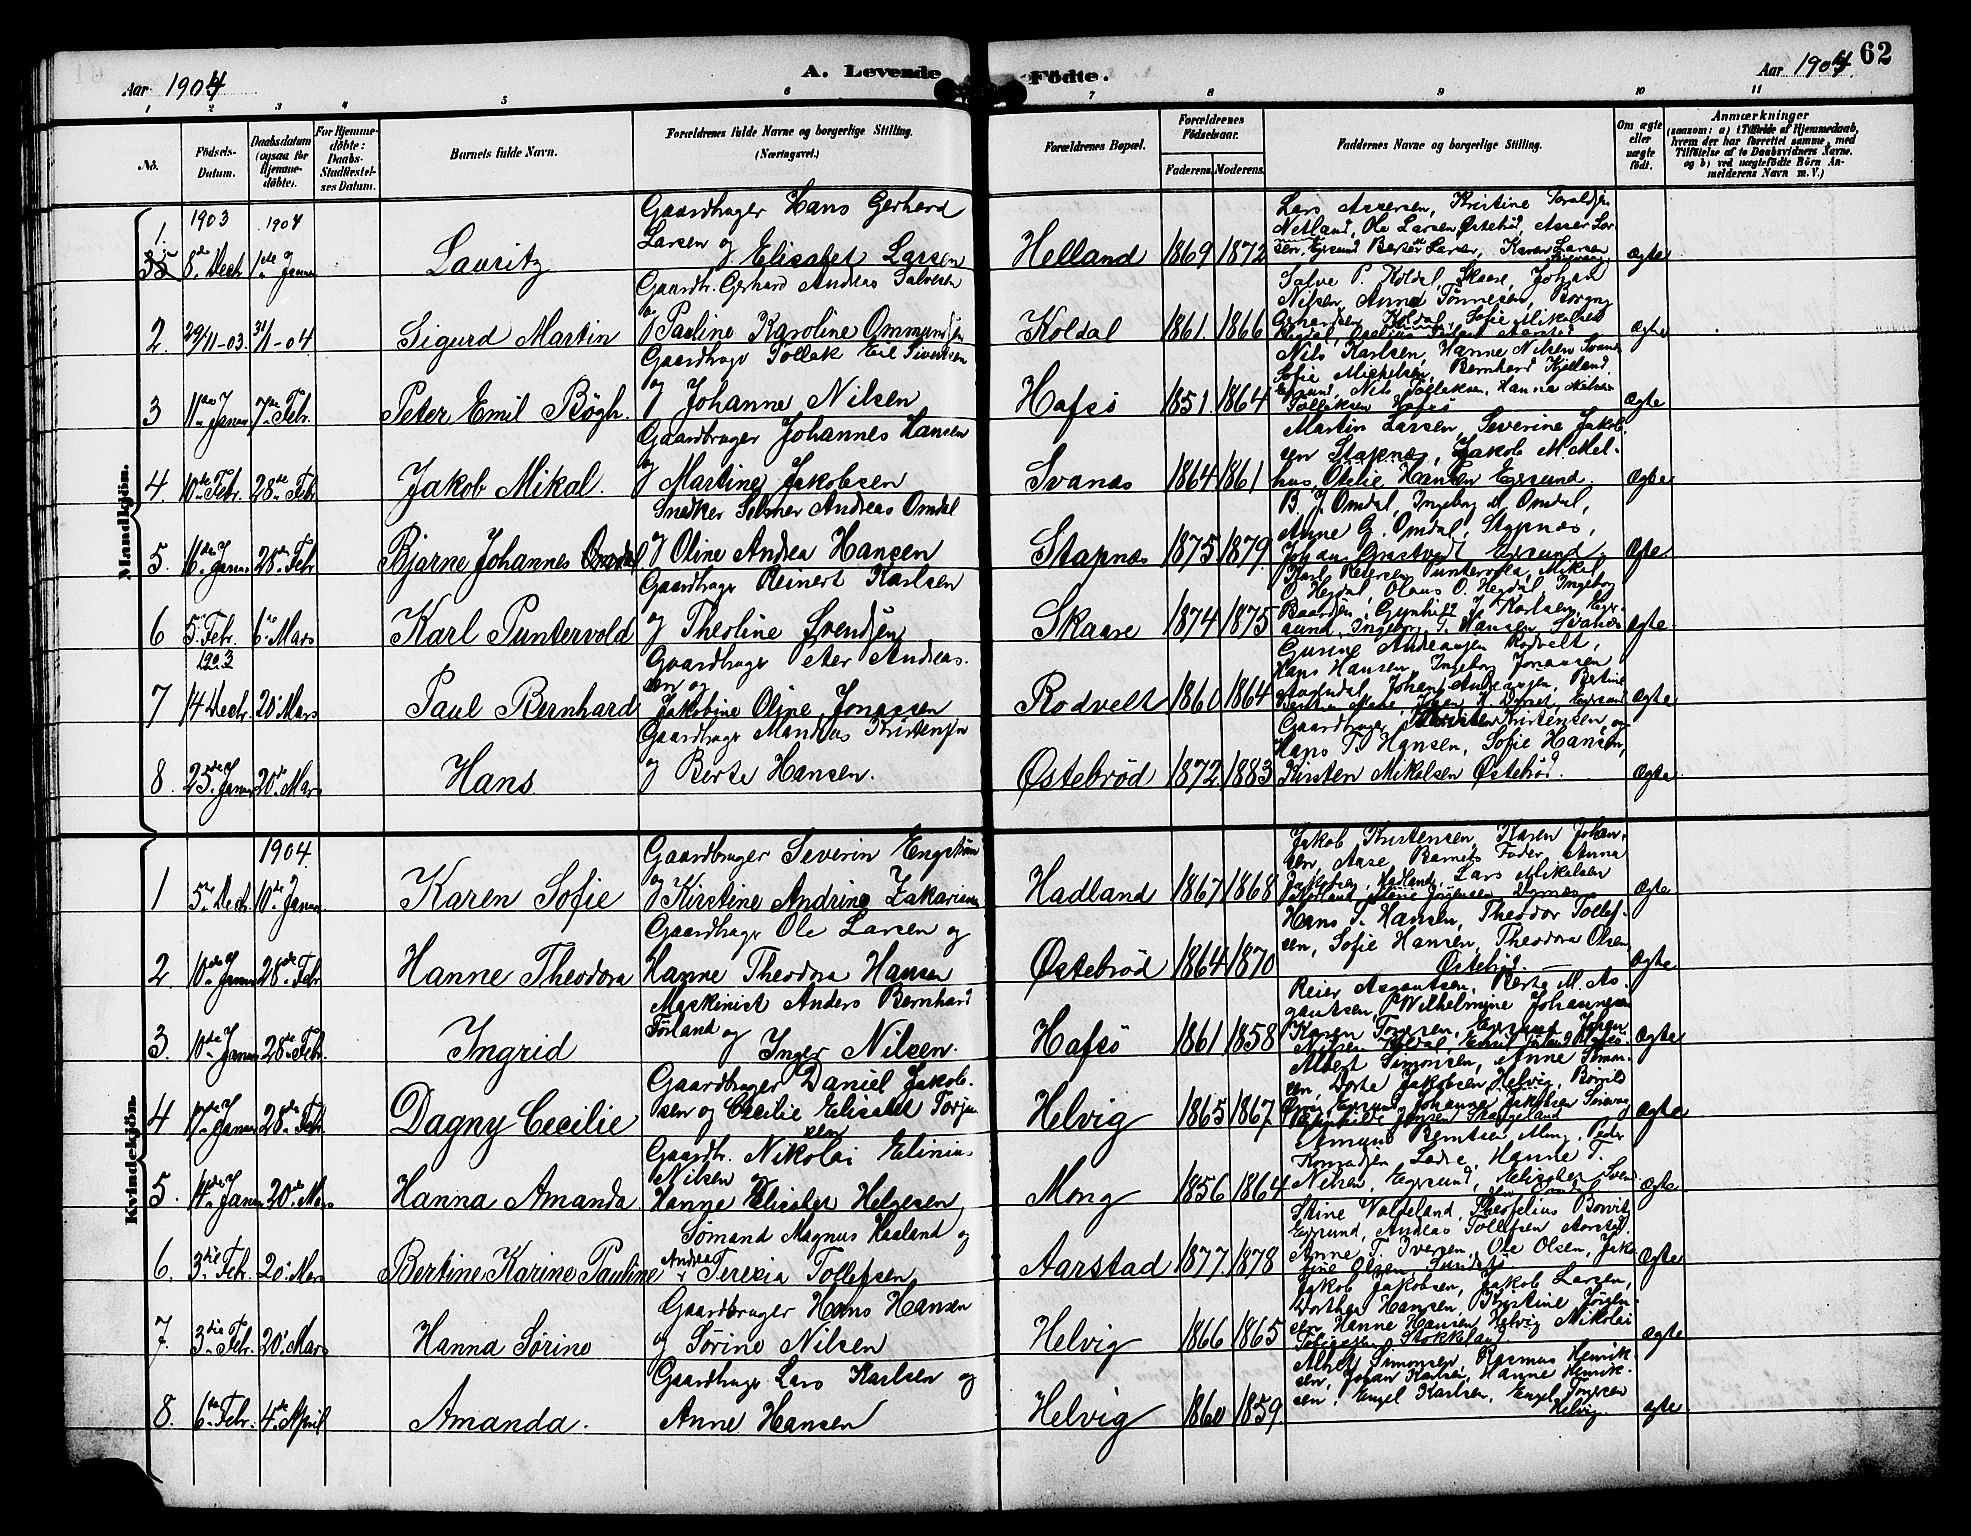 62
Aar 1904
A. Levende Födte.
Aar 1904.
1 2 3 4 5 6 7 8 9 10 11
No.
Födsels-Datum.
Daabsdatum (ogsaa for Hjemme-döbte).
For Hjemme-döbte: Daabs-Stadfæstel-ses Datum.
Barnets fulde Navn.
Forældrenes fulde Navne og borgerlige Stilling. (Næringsvei.)
Forældrenes Bopæl.
Forældrenes Födselsaar.
Faderens. Moderens.
Faddernes Navne og borgerlige Stilling.
Om ægte eller uægte födt.
Anmærkninger
(saasom: a) i Tilfælde af Hjemmedaab, hvem der har forrettet samme, med Tilföielse af to Daabsvidners Navne, og b) ved uægtefödte Börn An-melderens Navn m. V.)
Mandkjön.
1903 1904
1. 8de Decb 1ste Januar Lauritz
Gaardbruger Hans Gerhard
Larsen og Elisabet Larsen
Helland 1869 1872
Lars Assersen, Kristine
Netland, Ole Larsen Østebrød, Asser Lar-
sen, Egersund Larsen, Karen Larsen
ægte
2. 29/11-03. 31/1-04 Sigurd Martin
Gaardbr. Gerhard Andreas Salvesen
og Pauline Karoline Ommundsen
Koldal 1861 1866
Salve P. Koldal, Skaare, Johan
Nilsen, Anna Tønnesen, Borgny
Koldal, Sofie Mikelsen
ægte
3 11te Januar 7de Febr. Peter Emil Bøgh.
Gaardbruger Tollak Emil Sivertsen
og Johanne Nilsen
Hafsö 1851 1864
Nils Karlsen, Hanne Nilsen
Sofie Mickelsen, Bernhard Kjelland
Egersund, Nils Tollaksen, Hanna
Tollaksen Hafsö
ægte
4. 10de Febr. 28de Febr Jakob Mikal.
Gaardbruger Johannes Hansen
og Martine Jakobsen
Svanæs 1864 1861
Martin Larsen, Severine Jakob-
sen Stapnæs, Jakob M. Mel-
hus, Otelie Hansen Egersund
ægte
5. 16de Januar 28de Febr Bjarne Johannes Omdal
Snedker Selmer Andreas Omdal
og Oline Andrea Hansen
Stapnæs 1875 1879
B. J. Omdal, Ingeborg Omdal,
Anne G. Omdal, Stapnæs,
Johan Egersund.
Ægte
6 5. Febr. 6te Mars Karl Puntervold
Gaardbruger Reinert Karlsen
og Theoline Svendsen
Skaare 1874 1875
Karl Petersen Puntervold, Mikal
O. Hegdal, Olaus O. Hegdal, Ingeborg
Gunhild J. Karlsen, Eger-
sund, Ingeborg T. Hansen Svanæs
ægte
1903
7 14 Decb. 20de Mars Paul Bernhard
Gaardbruger Peter Andreas-
sen og
Jakobine Oline Jonassen
Rodvelt 1860 1864
Gurine Andreassen Rodvelt,
Hans Hansen, Ingeborg Jonassen,
Johan Andreassen, Bertine
Egersund
ægte
8. 25de Januar 20de Mars Hans
Gaardbruger Mandius Kristensen
og Berte Hansen.
Østebröd 1872 1883
Gaardbruger Kristensen og
Hans T. Hansen, Sofie Hansen,
Kirsten Mikalsen Østebrød.
Ægte
Kvindekjön.
1904.
1 5te Decb. 10de Januar Karen Sofie
Gaardbruger Severin Engström
og Kirstine Andrine Zakariassen
Hadland 1867 1868
Jakob Kristensen, Karen Johan-
sen, Aase, Barnets Fader, Anna
Jakobsen, Hadland, Lars Mikelsen
Ægte
2. 10de Januar 28de Febr Hanne Theodora
Gaardbruger Ole Larsen og
Hanne Theodora Hansen
Østebröd 1864 1870
Hans T. Hansen, Theodor Tollef-
sen, Sofie Hansen, Theodora Olsen
Østebröd.
Ægte
3. 10de Januar 28de Febr. Ingrid
Maskinist Anders Bernhard
Tørland og
Inger Nilsen.
Hafsö 1861 1858
Reier Asgautsen, Berte M. As-
gautsen, Wilhelmine Johannessen
Karen Torjesen, Egersund, Johan
Ægte
4 17de Januar 28de Febr. Dagny Cecilie
Gaardbruger Daniel Jakob-
sen og Cecilie Elisabet Torjus
sen
Helvig 1865 1867
Albert Simonsen, Anne Simon-
sen, Dorte Jakobsen Helvig,
Egersund, Johanne Jakobsen
Skadgeland
Ægte
5. 14de Januar 20de Mars Hanna Amanda
Gaardbr. Nikolai Elinius
Nilsen og
Hanne Elisabet Helgesen
Mong 1856 1864
Amund Berntsen Mong, Peder
Konradsen Hanne T.
Nilsen, Egersund, Elisabet
ægte
6. 3die Febr. 20de Mars Bertine Karine Pauline
Sømand Magnus Haaland og
Andrea Teresia Tollefsen
Aarstad 1877 1878
Stine Vadeland, Theofelius
Egersund, Andreas Tollefsen Aarstad.
Anne T. Iversen, Ole Olsen,
Olsen
Ægte
7. 3die Febr. 20de Mars Hanna Sørine
Gaardbruger Hans Hansen
og Sørine Nilsen
Helvig 1866 1865
Jakob Jakobsen, Jakob Larsen,
Dorthea Hansen, Kristine Jørgen-
sen, Hanne Hansen Helvig Nikolai
Stokkeland
Ægte
8. 6te Febr. 4de April Amanda.
Gaardbruger Lars Karlsen og
Anne Hansen
Helvig 1860 1859
Albert Simonsen, Rasmus Henrik-
sen, Johan Karlsen, Hanne Henrik-
sen, Engel Karlsen, Engel Torjesen
Helvig
ægte